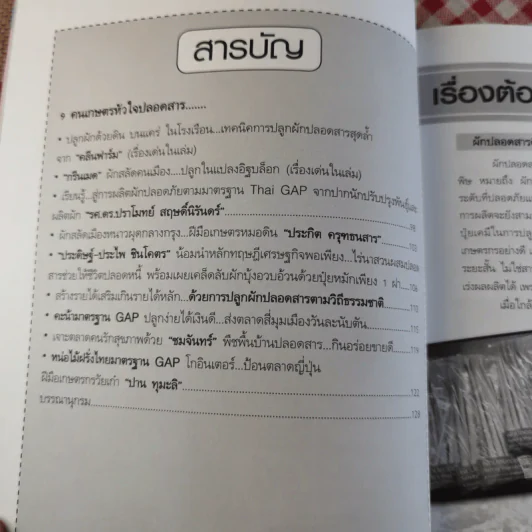 สารบัญ
๑ คนเกษตรหัวใจปลอดสาร......
• ปลูกผักด้วยดิน บนแคร่ ในโรงเรือน...เทคนิคการปลูกผักปลอดสารสุดล้ำ
จาก "คลีนฟาร์ม" (เรื่องเด่นในเล่ม)
• "กรีนเมด" ผักสลัดคนเมือง....ปลูกในแปลงอิฐบล็อก (เรื่องเด่นในเล่ม)
• เรียนรู้...สู่การผลิตผักปลอดภัยตามมาตรฐาน Thai GAP จากปากนักปรับปรุงพันธุ์และ
ผลิตผัก "รศ.ดร.ปราโมทย์ สฤษดิ์นิรันดร์"
• ผักสลัดเมืองหนาวผุดกลางกรุง...ฝีมือเกษตรหมอดิน "ประกิต ครุฑธนสาร"
• "ประดิษฐ์-ประไพ ชินโคตร" น้อมนำหลักทฤษฎีเศรษฐกิจพอเพียง...ไร่นาสวนผสมปลอด
สารช่วยให้ชีวิตปลอดหนี้ พร้อมเผยเคล็ดลับผักบุ้งอวบอ้วนด้วยปุ๋ยหมักเพียง 1 ฝา
• สร้างรายได้เสริมเกินรายได้หลัก...ด้วยการปลูกผักปลอดสารตามวิถีธรรมชาติ
• คะน้ามาตรฐาน GAP ปลูกง่ายได้เงินดี...ส่งตลาดสี่มุมเมืองวันละนับตัน
เจาะตลาดคนรักสุขภาพด้วย "ชมจันทร์" พืชพื้นบ้านปลอดสาร...กินอร่อยขายดี
• หน่อไม้ฝรั่งไทยมาตรฐาน GAP โกอินเตอร์...ป้อนตลาดญี่ปุ่น
ฝีมือเกษตรกรวัยเก๋า "ปาน ทุมะลิ"
บรรณานุกรม
เรื่องต้อ
ผักปลอดสาร
ผักปลอดส
พิษ หมายถึง ผัก
ระดับที่ปลอดภัยแ
การผลิตจะยังสาม
ปุ๋ยเคมีในการปลูก
เกษตรกรอย่างดี
ระยะสั้น ไม่ใช่สาร
เร่งผลผลิตได้ เพร
เมื่อใกล้